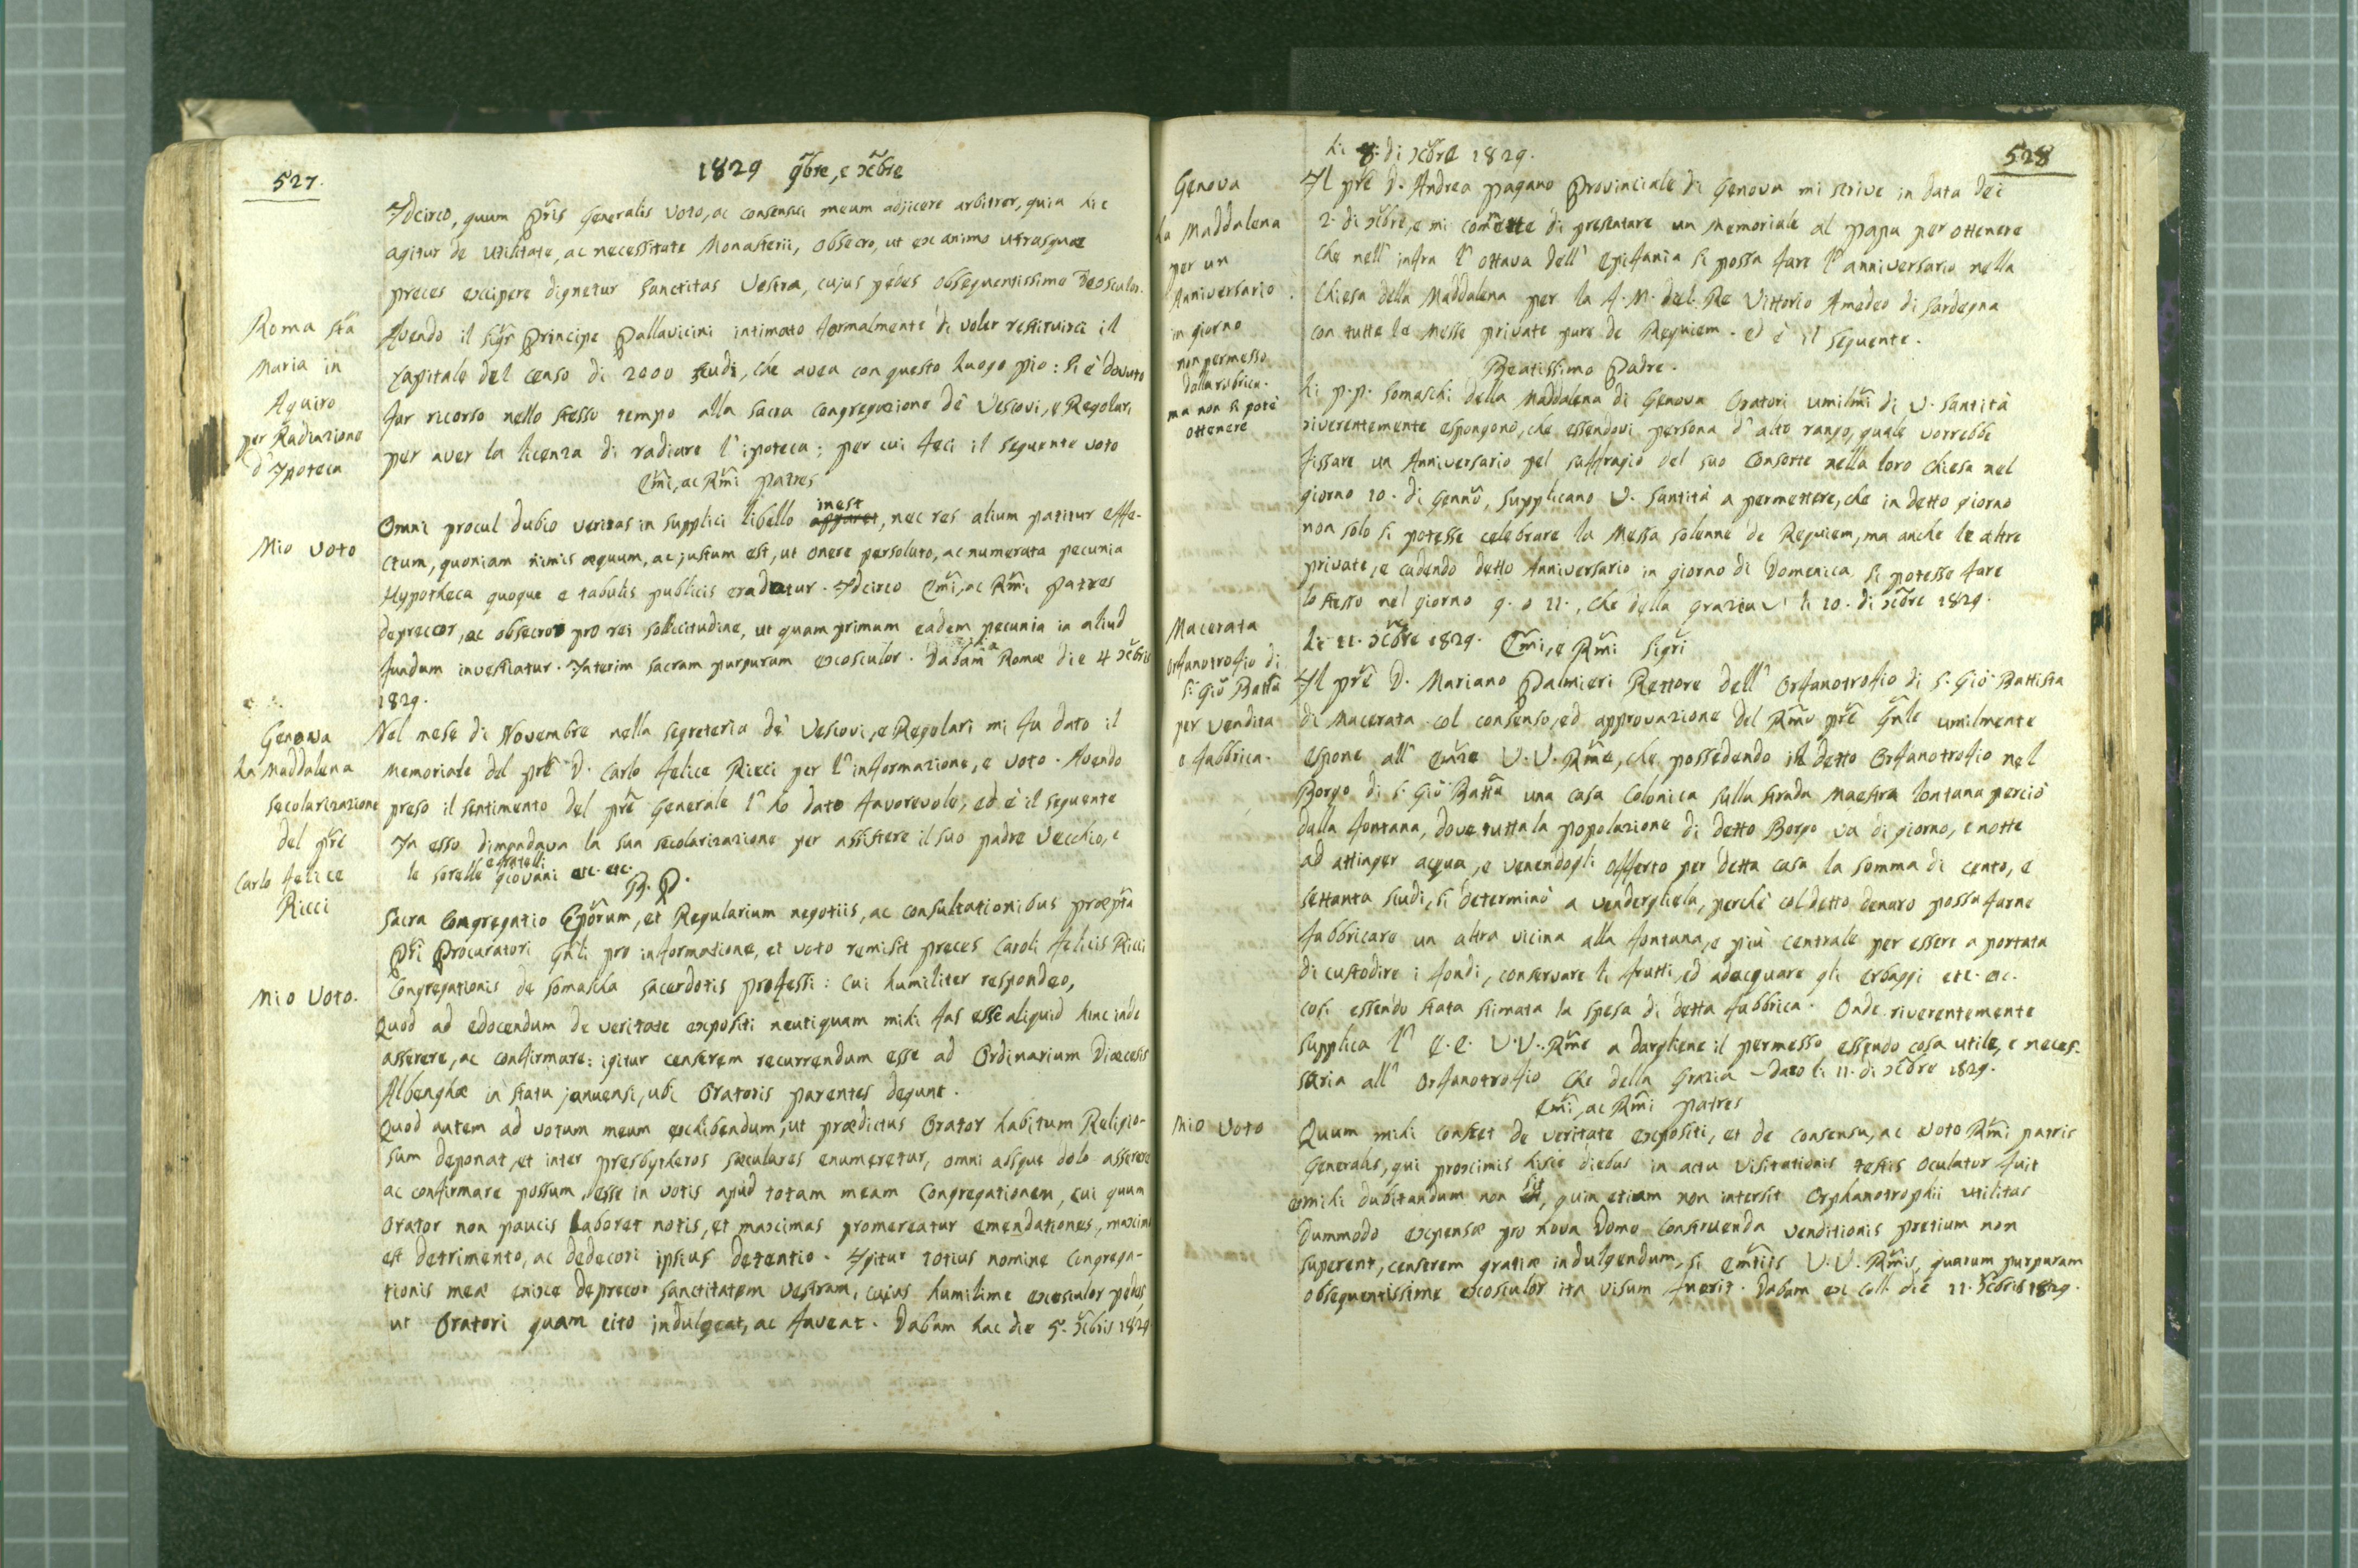 527.
1829 9bre, e Xcbre
Idcirco, quum Pris Generalis voto, ac consensui meum adjicere arbitrer, quia hic
agitur de utilitate, ac necessitate Monasterii, obsecro, ut ex animo utrasque
preces excipere dignetur Sanctitas Vestra, cujus pedes obsequentissime deosculor.
Roma Sta
Maria in
Aquiro
per Radiazione
d'Ipoteca
Avendo il Sigr Principe Pallavicini intimato formalmente di voler restituirci il
Capitale del censo di 2000 scudi, che avea con questo Luogo pio: si è dovuto
far ricorso nello stesso tempo alla sacra Congregazione de' Vescovi, e Regolari
per aver la licenza di radiare l'ipoteca; per cui feci il seguente voto
Emi, ac Rmi Patres
Mio voto
Omni procul dubio veritas in supplici libello apparet inest, nec res alium patitur effe-
ctum, quoniam nimis æquum, ac justum est, ut onere persoluto, ac numerata pecunia
Hypotheca quoque e tabulis publicis eradatur. Idcirco Emi, ac Rmi Patres
deprecor, ac obsecro pro rei sollicitudine, ut quam primum eadem pecunia in aliud
fundum investiatur. Interim sacram purpuram exosculor. Dabam Romæ die 4 Xcbris
1829.
Genova
La Maddalena
Secolarizazione
del pre
Carlo Felice
Ricci
Nel mese di Novembre nella segreteria de' Vescovi, e Regolari mi fu dato il
memoriale del pre D. Carlo Felice Ricci per l'informazione, e voto. Avendo
preso il sentimento del pre Generale l'ho dato favorevole, ed è il seguente
In esso dimandava la sua secolarizazione per assistere il suo padre vecchio, e
le sorelle e fratelli giovani etc. etc.
B. P.
Mio Voto.
Sacra Congregatio Eporum, et Regularium negotiis, ac consultationibus præpta
Pri Procuratori Gnli pro informatione, et voto remisit preces Caroli Felicis Ricci
Congregationis de Somascha sacerdotis professi: cui humiliter respondeo,
Quod ad edocendum de veritate expositi neutiquam mihi fas esse aliquid hinc inde
asserere, ac confirmare: igitur censerem recurrendum esse ad Ordinarium Diœcesis
Albenghæ in statu januensi, ubi Oratoris parentes degunt.
Quod autem ad votum meum exhibendum, ut prædictus Orator habitum Religio-
sum deponat, et inter presbytheros sæculares enumeretur, omni absque dolo asserere
ac confirmare possum, esse in votis apud totam meam Congregationem, cui quum
Orator non paucis laboret notis, et maximas promereatur emendationes, maximo
est detrimento, ac dedecori ipsius detentio. Igitur totius nomine Congrega-
tionis meæ enixe deprecor Sanctitatem Vestram, cujus humilime exosculor pedes,
ut Oratori quam cito indulgeat, ac faveat. Dabam hac die 5. Xcbris 1829
528
Li 8. di Xcbre 1829.
Genova
La Maddalena
per un
Anniversario
in giorno
non permesso
dalla rubrica.
ma non si potè
ottenere
Il pre D. Andrea Pagano Provinciale di Genova mi scrive in data dei
2. di Xcbre, e mi comette di presentare un Memoriale al Papa per ottenere
che nell'infra l'ottava dell'Epifania si possa fare l'anniversario nella
Chiesa della Maddalena per la A. M. del Re Vittorio Amedeo di Sardegna
con tutte le Messe private pure de Requiem. ed è il seguente.
Beatissimo Padre.
Li P.P. Somaschi della Maddalena di Genova Oratori umilmi di V. Santità
riverentemente espongono, che essendovi persona d'alto rango, quale vorrebbe
fissare un Anniversario pel suffragio del suo Consorte nella loro Chiesa nel
giorno 10. di Genno, supplicano V. Santità a permettere, che in detto giorno
non solo si potesse celebrare la Messa solenne de Requiem, ma anche le altre
private, e cadendo detto Anniversario in giorno di Domenica si potesse fare
lo stesso nel giorno 9. o 11., che della grazia li 10. di Xcbre 1829.
Macerata
Orfanotrofio di
S. Gio Batta
per vendita
e fabbrica.
Li 11. Xcbre 1829. Emi, e Rmi Sigri
Il pre D. Mariano Palmieri Rettore dell'Orfanotrofio di S. Gio Battista
di Macerata col consenso, ed approvazione del Rmo pre Gnle umilmente
espone all'Emze V.V. Rme, che possedendo il detto Orfanotrofio nel
Borgo di S. Gio Batta una casa Colonica sulla strada Maestra lontana perciò
dalla fontana, dove tutta la popolazione di detto Borgo va di giorno, e notte
ad attinger acqua, e venendogli offerto per detta casa la somma di cento, e
settanta scudi, si determinò a vendergliela, perchè col detto denaro possa farne
fabbricare un altra vicina alla fontana, e più centrale per essere a portata
di custodire i fondi, conservare li frutti, ed adacquare gli erbaggi etc. etc.
così essendo stata stimata la spesa di detta fabbrica. Onde riverentemente
supplica l'E.E. V.V. Rme a dargliene il permesso essendo cosa utile, e neces-
saria all'Orfanotrofio che della Grazia Dato li 11. di Xcbre 1829.
Emi, ac Rmi Patres
Mio voto
Quum mihi constet de veritate expositi, et de consensu, ac voto Rmi patris
Generalis, qui proximis hisce diebus in actu visitationis testis oculatur fuit
mihi dubitandum non sit, quin etiam non intersit Orphanotrophii utilitas
dummodo expensæ pro nova domo construenda venditionis pretium non
superent, censerem gratiæ indulgendum, si Emtiis V.V. Rmis, quarum purpuram
obsequentissime exosculor ita visum fuerit. Dabam ex coll. die 11. Xcbris 1829.